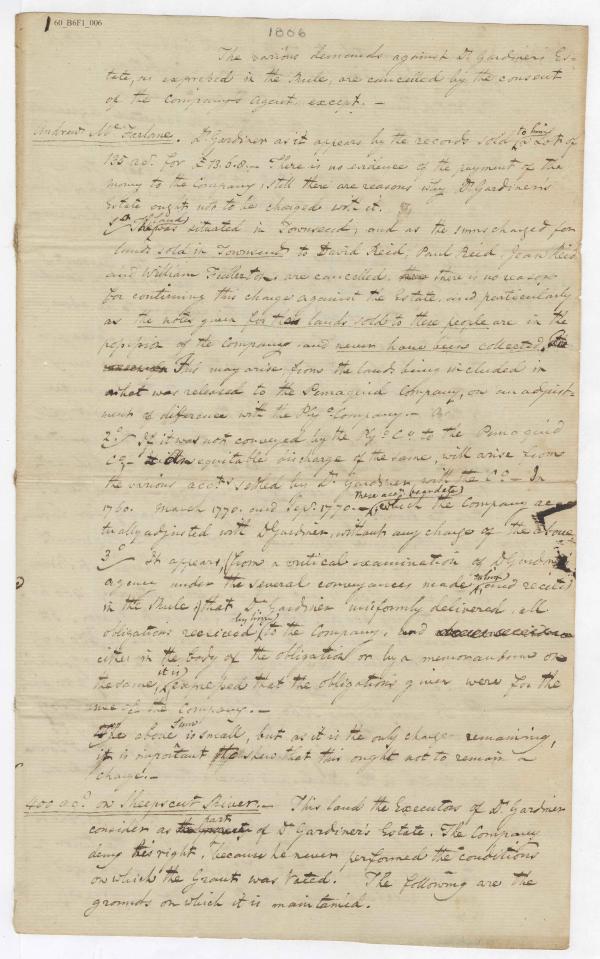 60_B6F1_006
1806
The various demands against Dr. Gardiner's Es-
tate, as expressed in the Rule, are cancelled by the consent
of the Company's agent, except. —
Andrew McFarlane. Dr. Gardiner as it appears by the records sold to him a Lot of
135 acs. for £13.6.8. — There is no evidence of the payment of the
money to the Company, still there are reasons why Dr. Gardiner's
Estate ought not to be charged with it.
1st The land was situated in Townsend, and as the sums charged for
lands sold in Townsend to David Reid, Paul Reid, Jean Reid
and William Fullerton, are cancelled, there is no reason
for continuing this charge against the Estate, and particularly
as the notes given for lands sold to these people are in the
possession of the Company and never have been collected,
This may arise from the lands being included in
what was released to the Pemaquid Company, on an adjust-
ment of difference with the Ply. Company. —
2d If it was not conveyed by the Ply. Co. to the Pemaquid
Co. — An equitable discharge of the same, will arise from
the various accts. settled by Dr. Gardiner with the Co. — In
1760. March 1770. and Sepr. 1770. — which the Company ac-
tually adjusted with Dr Gardiner, without any charge of the above
3d It appears, from a critical examination of Dr Gardiner's
agency under the several conveyances made to him and recited
in the Rule, that Dr. Gardiner uniformly delivered, all
obligations received by him to the Company, and
either in the body of the obligation or by a memorandum on
the same, it is expressed that the obligations given were for the
use of the Company. —
The above sum is small, but as it is the only charge remaining,
it is important to shew that this ought not to remain a
charge. —
400 acs. on Sheepscut River. — This land the Executors of Dr. Gardiner
consider as part of Dr Gardiner's Estate. The Company
deny his right, because he never performed the conditions
on which the Grant was Voted. The following are the
grounds on which it is maintained.